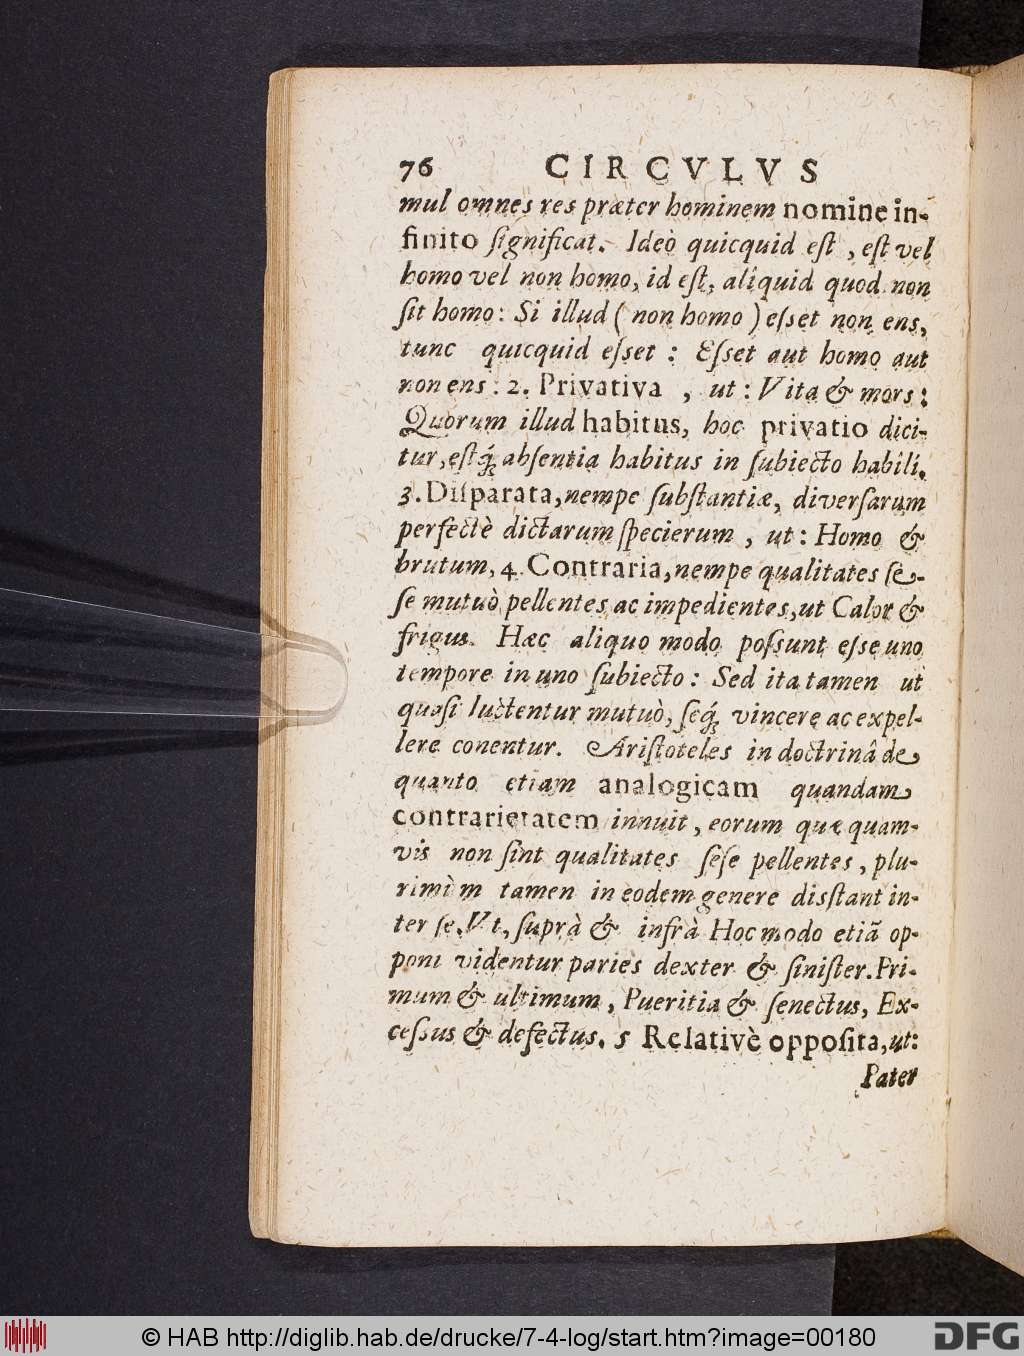 76 CIRCVLVS
mul omnes res præter hominem nomine in-
finito ſignificat. Ideò quicquid eſt, eſt vel
homo vel non homo, id eſt, aliquid quod non
ſit homo: Si illud ( non homo ) eſset non ens,
tunc quicquid eſset : Eſset aut homo aut
non ens : 2. Privativa , ut : Vita & mors :
Quorum illud habitus, hoc privatio dici-
tur, eſtq́; abſentia habitus in ſubiecto habili.
3. Diſparata, nempe ſubſtantiæ, diverſarum
perfectè dictarum ſpecierum , ut : Homo &
brutum, 4. Contraria, nempe qualitates ſe-
ſe mutuò pellentes ac impedientes, ut Calor &
frigus. Hæc aliquo modo poſsunt eſse uno
tempore in uno ſubiecto : Sed ita tamen ut
quaſi luctentur mutuò, ſeq́; vincere ac expel-
lere conentur. Ariſtoteles in doctrinâ de
quanto etiam analogicam quandam
contrarietatem innuit, eorum quæ quam-
vis non ſint qualitates ſeſe pellentes, plu-
rimùm tamen in eodem genere disſtant in-
ter ſe. Vt, ſuprà & infrà Hoc modo etiã op-
poni videntur paries dexter & ſiniſter. Pri-
mum & ultimum, Pueritia & ſenectus, Ex-
ceſsus & defectus. 5 Relativè oppoſita, ut:
Pater
© HAB http://diglib.hab.de/drucke/7-4-log/start.htm?image=00180
DFG